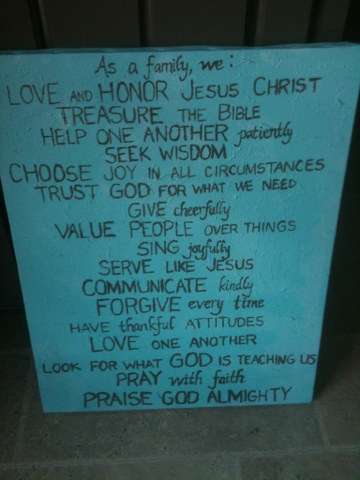 As a family, we:
LOVE AND HONOR JESUS CHRIST
TREASURE THE BIBLE
HELP ONE ANOTHER patiently
SEEK WISDOM
CHOOSE JOY IN ALL CIRCUMSTANCES
TRUST GOD FOR WHAT WE NEED
GIVE cheerfully
VALUE PEOPLE OVER THINGS
SING joyfully
SERVE LIKE JESUS
COMMUNICATE kindly
FORGIVE every time
HAVE thankful ATTITUDES
LOVE ONE ANOTHER
LOOK FOR WHAT GOD IS TEACHING US
PRAY with faith
PRAISE GOD ALMIGHTY